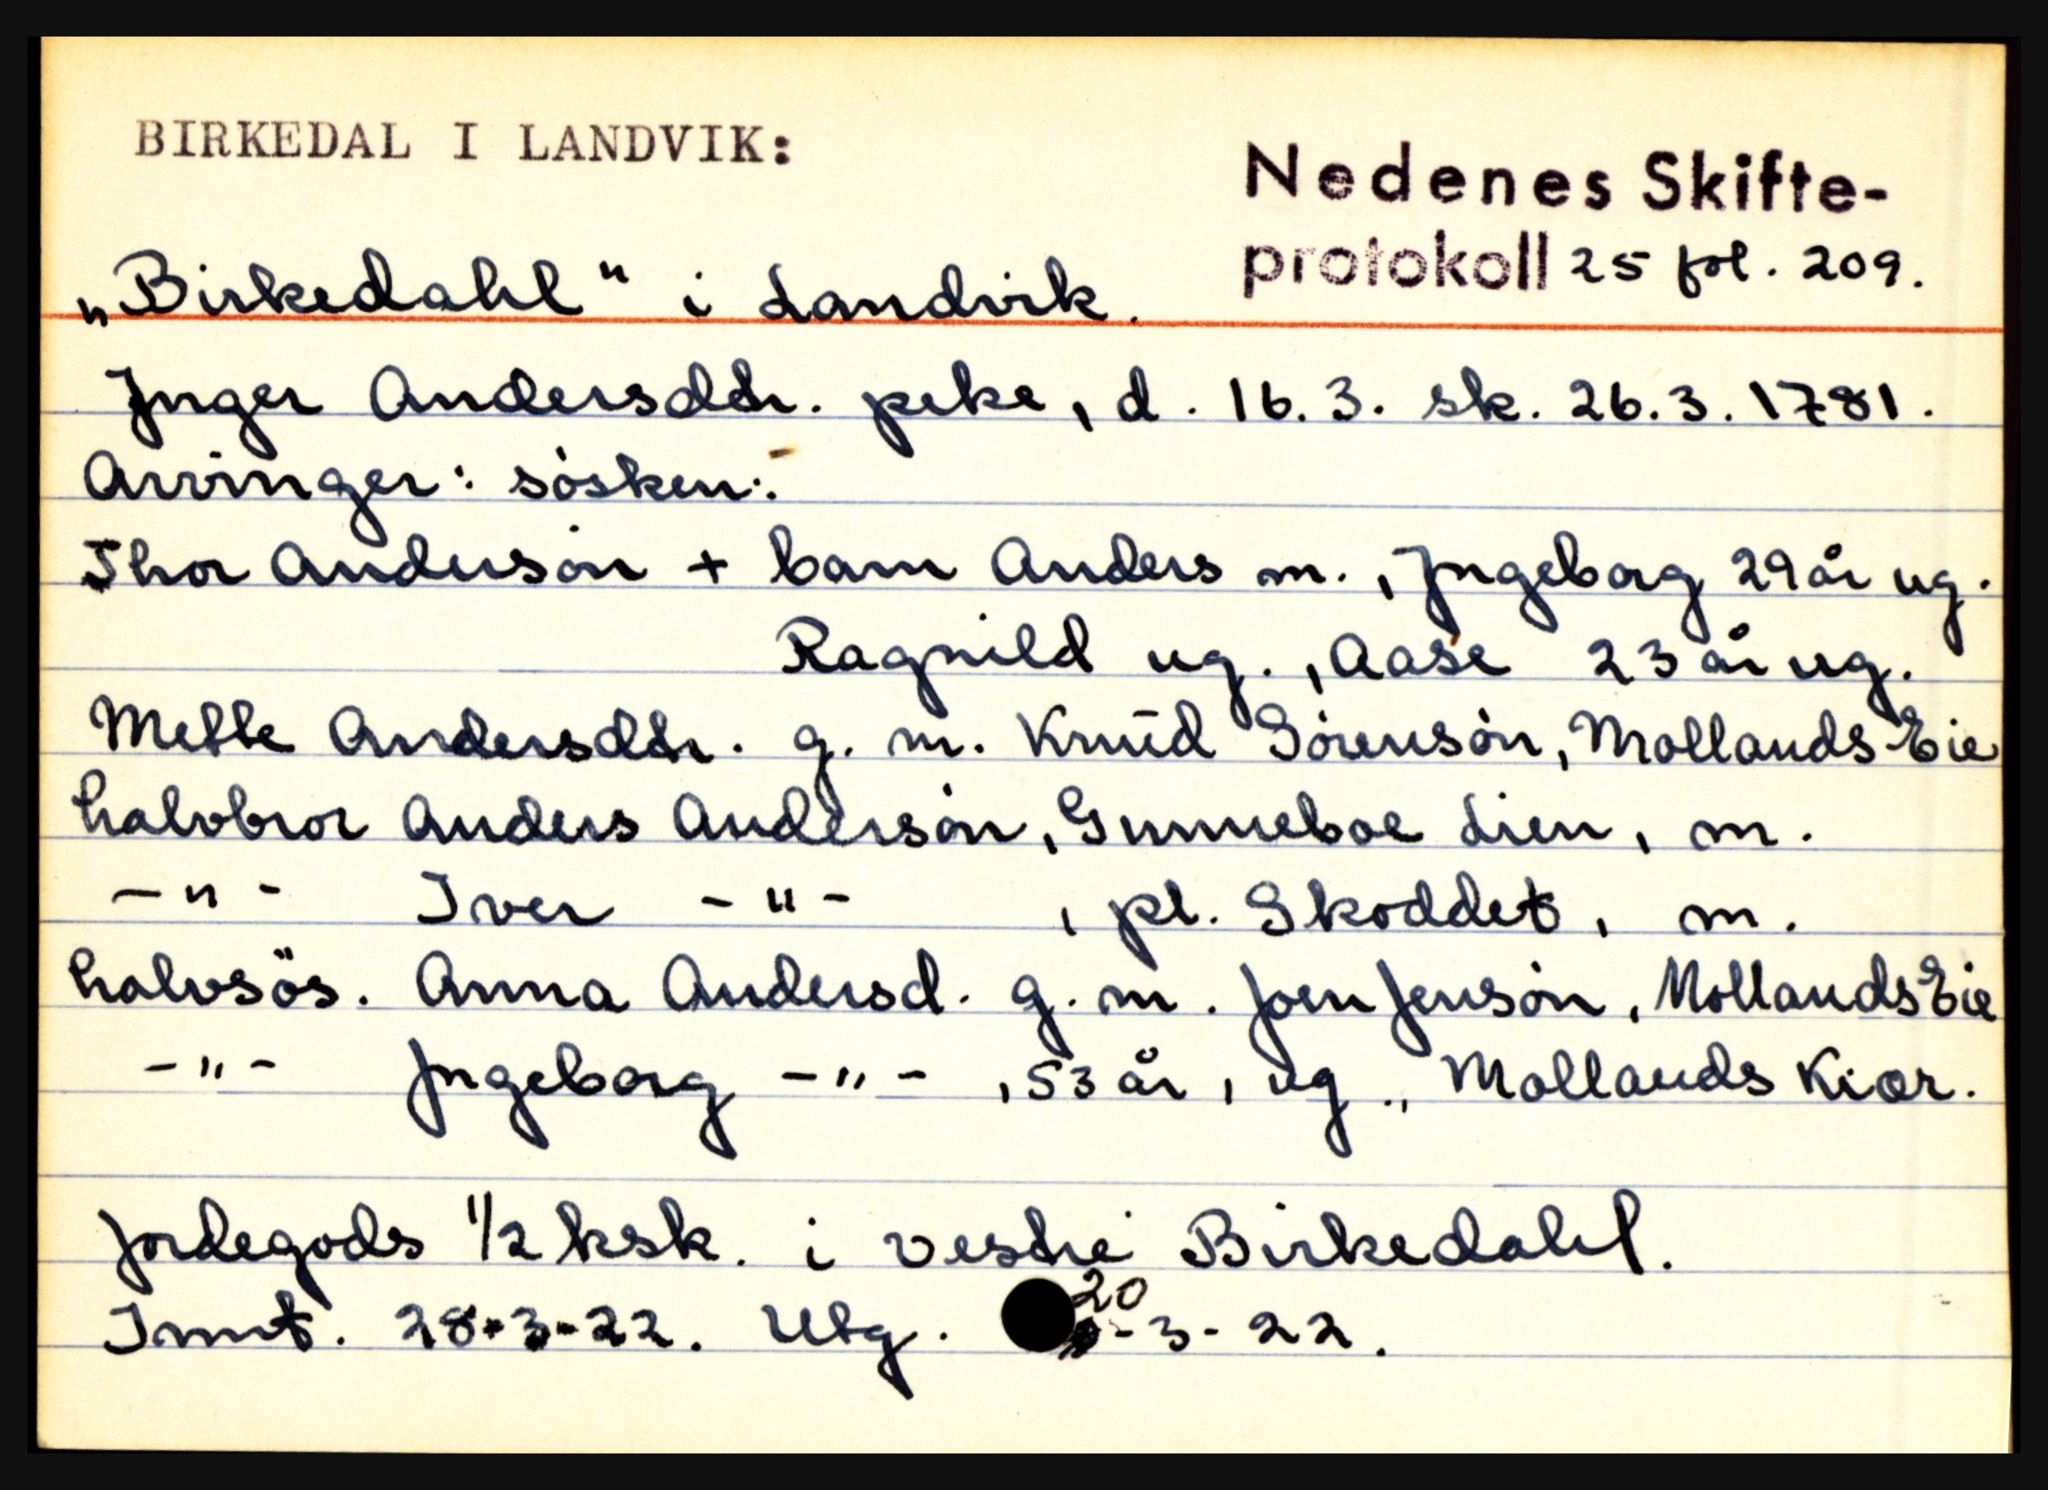 BIRKEDAL I LANDVIK:
Nedenes Skifte-
protokoll 25 fol. 209.
„Birkedahl" i Landvik.
Inger Andersdtr. peke, d. 16.3. sk. 26.3.1781.
Arvinger: søsken:
Thor Andersøn + barn Anders m., Ingeborg 29 år ug.
Ragnild ug., Aase 23 år ug.
Mette Andersdtr. g. m. Knud Sørensøn, Mollands Eie
halvbror Anders Andersøn, Gunneboe Lien, m.
-"- Iver -"- , pl. Skoddet, m.
halvsøs. Anna Andersd. g. m. Joen Jensøn, Mollands Eie
-"- Ingeborg -"- , 53 år, ug., Mollands Kiær.
Jordegods 1/2 ksk. i vestre Birkedahl.
Innt. 28-3-22. Utg. 20-3-22.